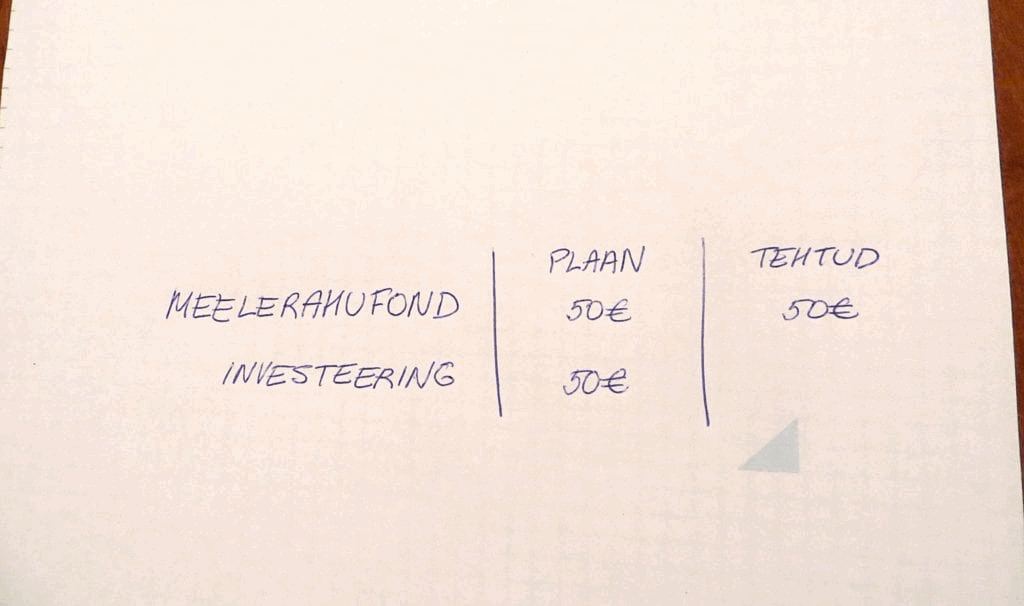 PLAAN TEHTUD
MEELERAHUFOND 50€ 50€
INVESTEERING 50€